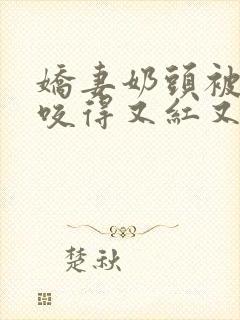 嬌妻奶頭被
咬得又紅又
楚秋